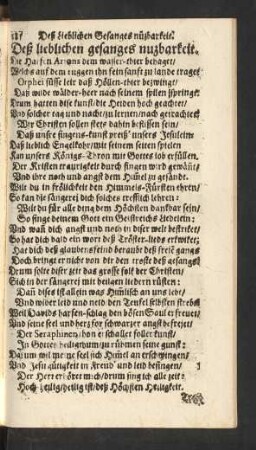 Deß lieblichen Gesanges nutzbarkeit.
Deß lieblichen gesanges nuzbarkeit.
Die Harfen Arions dem wasser-thier behaget/
Welchs auf dem ruggen ihn fein sanft zu lande traget
Orphei süsse leir daß Höllen-thier bezwinget/
Daß wilde wälder-heer nach seinem spilen springet
Drum hatten dise kunst/die Heiden hoch geachtet/
Und solcher tag und nacht/zu lernen/nach getrachtet
Wir Christen sollen stets dahin beflissen sein/
Daß unsre sing-kunst preiß unsern Jesulein
Daß lieblich Engelkohr/mit seinem seiten spielen
Kan unsers Königs-Thron mit Gottes lob erfüllen.
Der Kristen traurigkeit durch singen wird gewänt/
Und ihre noht und angst dem Himel zu gesände.
Wilt du in frölichkeit den Himmels-Fürsten ehren/
So kan die sängerei dich solches trefflich lehren:
Welt du für alle ding dem Höchsten dankbar sein/
So singe deinem Gott ein Geistreichs Liedelein:
Und wan dich angst und noch in diser welt bestritet/
So hat dich bald ein wort deß Tröster-lieds erkwiket;
Hat dich deß glaubens-feind beraubt deß
Hoch bringe er nicht von dir den trost deß gesangs/
Drum solte diser zeit das grosse folk der Christen/
Sich in der sängerei mit heiligen liedern rüsten:
Dan dises ist allein was Himlisch an uns lebt/
Und wider leid und neid den Teufel selbsten strebt
Weil Davids harfen-schlag den bösen Saul erfreuet/
Und seine seel und herz for schwarzer angst befreiet
Der Seraphinen chor erschallet foller kunst/
In Gottes heiligthum/zu rühmen seine gunst:
Darum wil meine seel sich Himel an erschwingen/
Und Jesu gütigkeit in Freud und leid besingen/
Der Herr erhöre mich/drum sing ich alle zeit:
Hoch-heilig/heilig ist/deß Höchsten Heiligkeit.